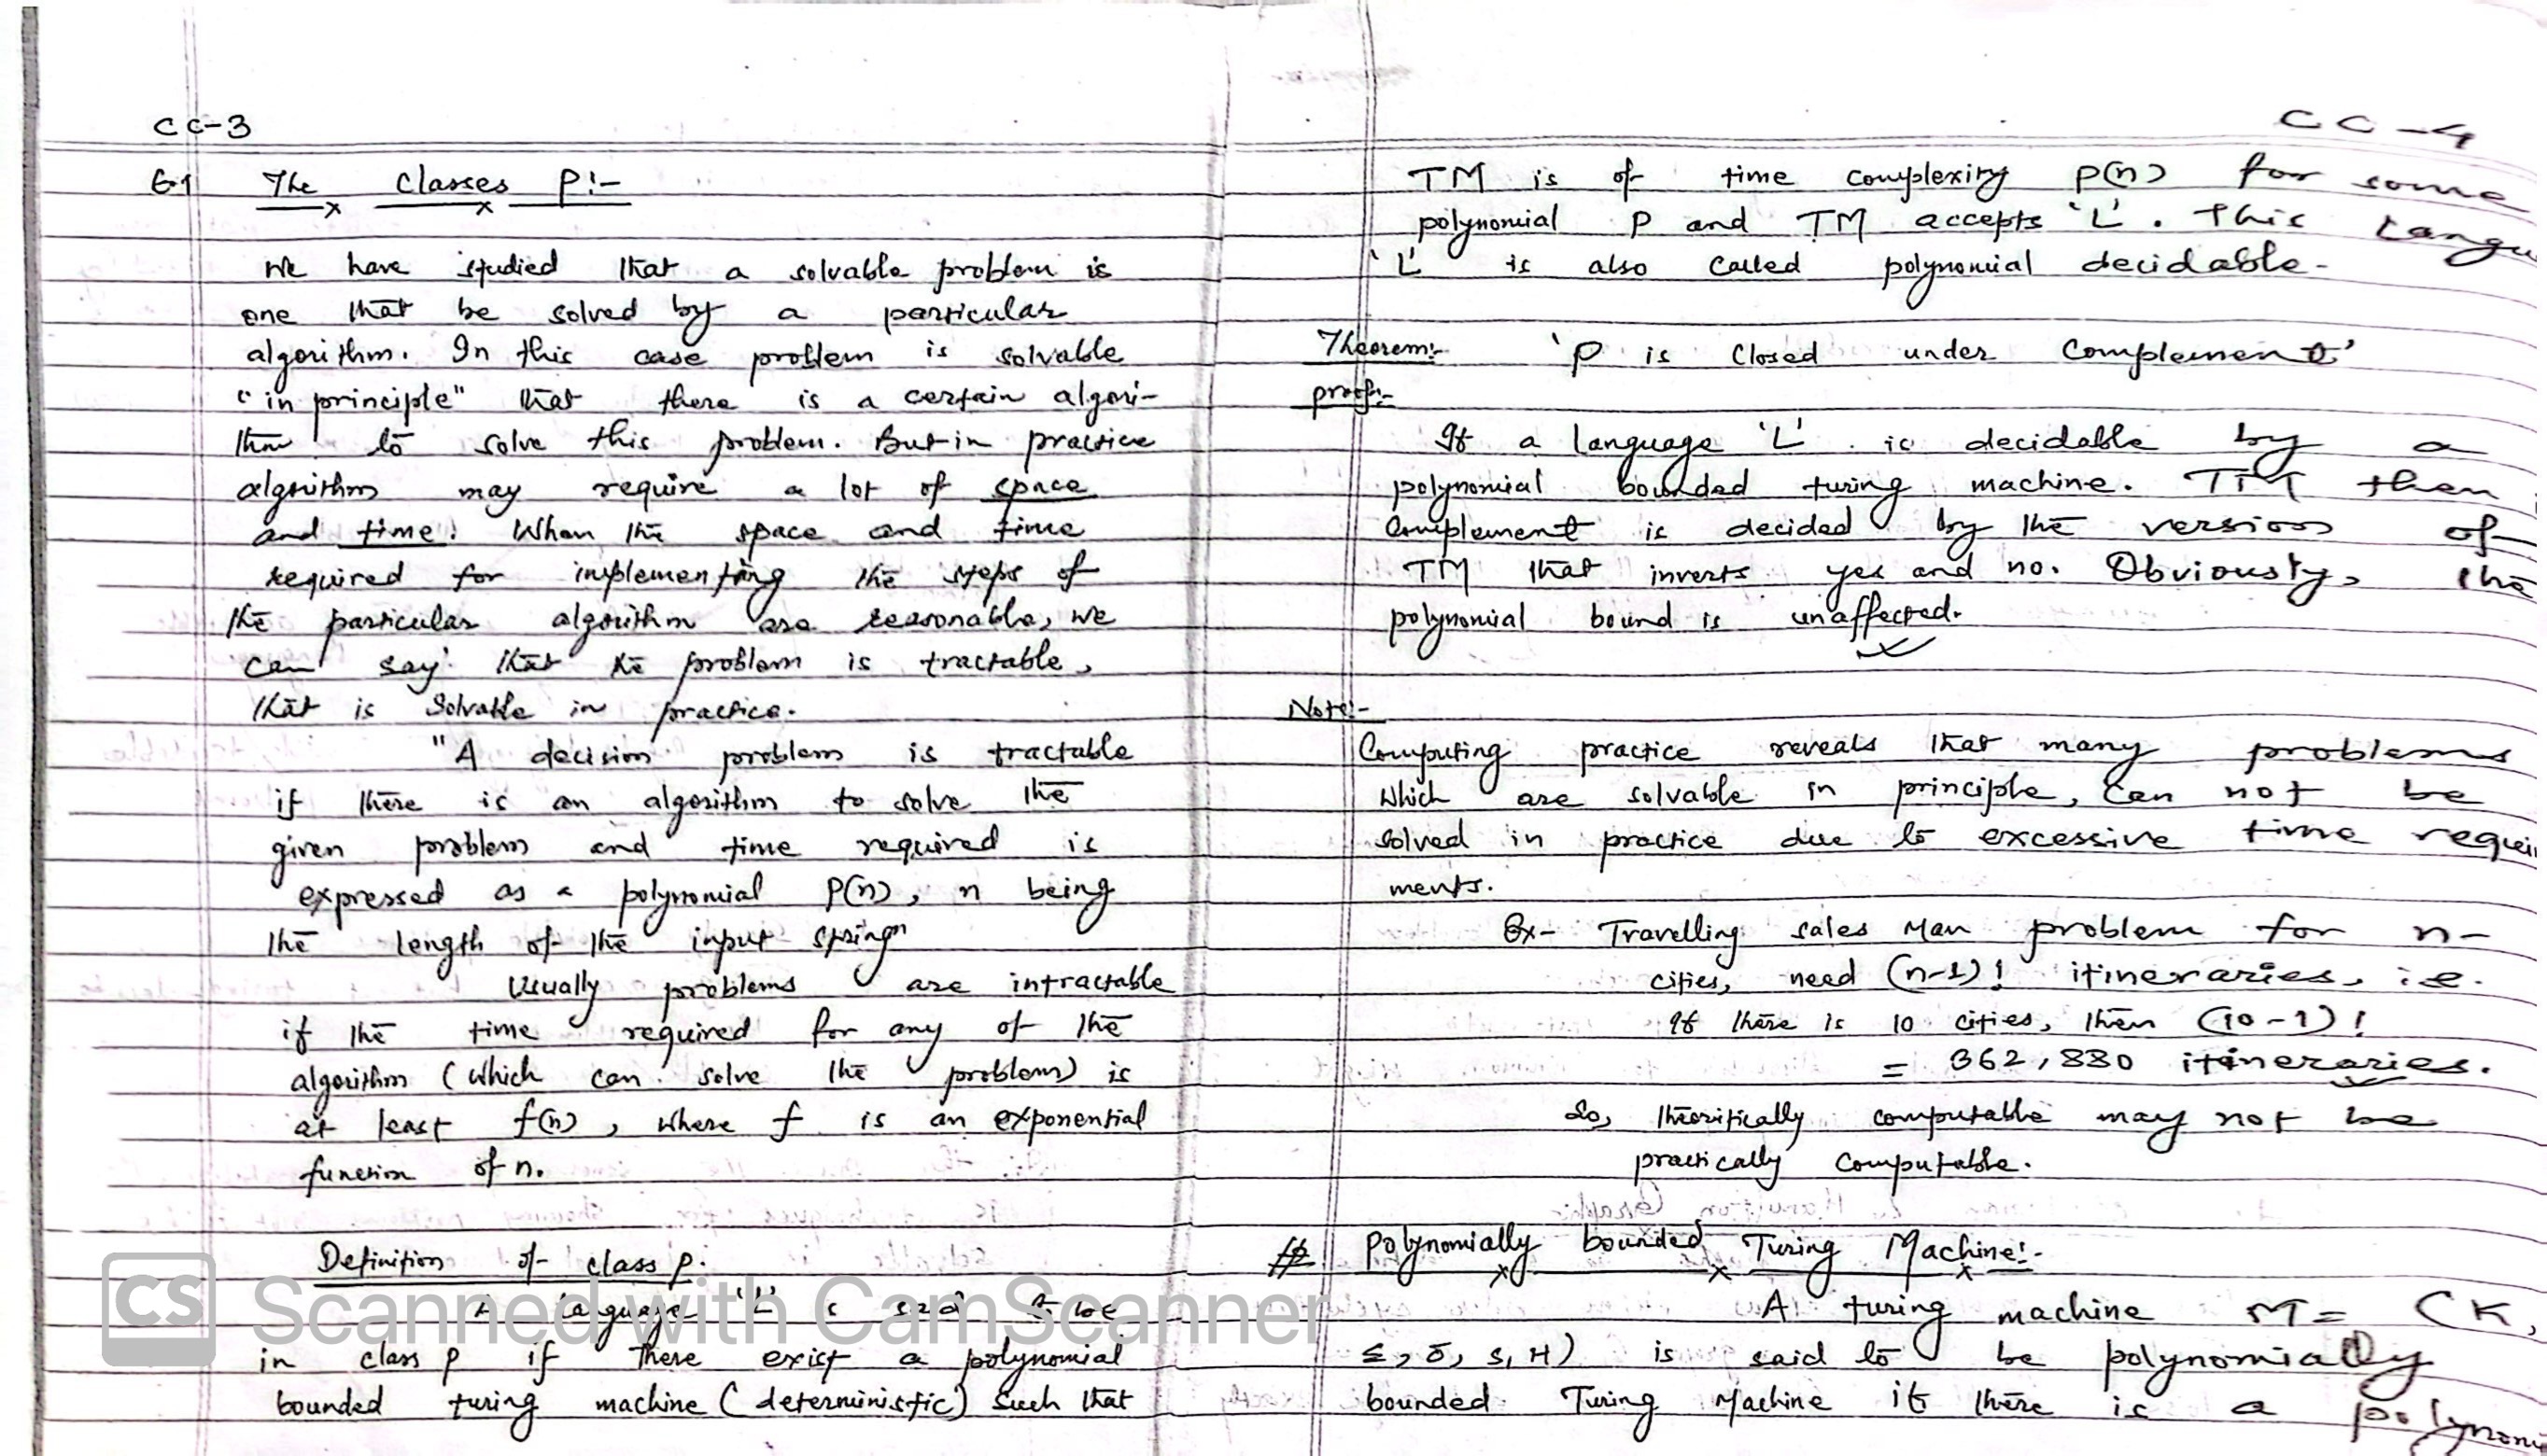 CC-3
6.1 The Classes P:-
We have studied that a solvable problem is
one that be solved by a particular
algorithm. In this case problem is solvable
"in principle" that there is a certain algori-
thm to solve this problem. But in practice
algorithm may require a lot of space
and time. When the space and time
required for implementing the steps of
the particular algorithm are reasonable, we
can say that the problem is tractable,
that is Solvable in practice.
"A decision problem is tractable
if there is an algorithm to solve the
given problem and time required is
expressed as a polynomial P(n), n being
the length of the input string"
Usually problems are intractable
if the time required for any of the
algorithm (which can solve the problem) is
at least f(n), where f is an exponential
function of n.
Definition of class p.
A language 'L' is said to be
in class p if there exist a polynomial
bounded turing machine (deterministic) such that
CC-4
TM is of time complexity P(n) for some
polynomial P and TM accepts 'L'. This Langu
'L' is also called polynomial decidable.
Theorem:- 'P is closed under complement'
proof:-
If a language 'L' is decidable by a
polynomial bounded turing machine. TM then
complement is decided by the version of
TM that inverts yes and no. Obviously, the
polynomial bound is unaffected.
Note:-
Computing practice reveals that many problems
which are solvable in principle, can not be
solved in practice due to excessive time requi
ments.
Ex- Travelling sales Man problem for n-
cities, need (n-1)! itineraries, i.e.
If there is 10 cities, then (10-1)!
= 362,880 itineraries.
So, theoritically computable may not be
practically computable.
# Polynomially bounded Turing Machine:-
A turing machine M = (K,
Σ, δ, s, H) is said to be polynomially
bounded Turing Machine if there is a polynomi
CS Scanned with CamScanner